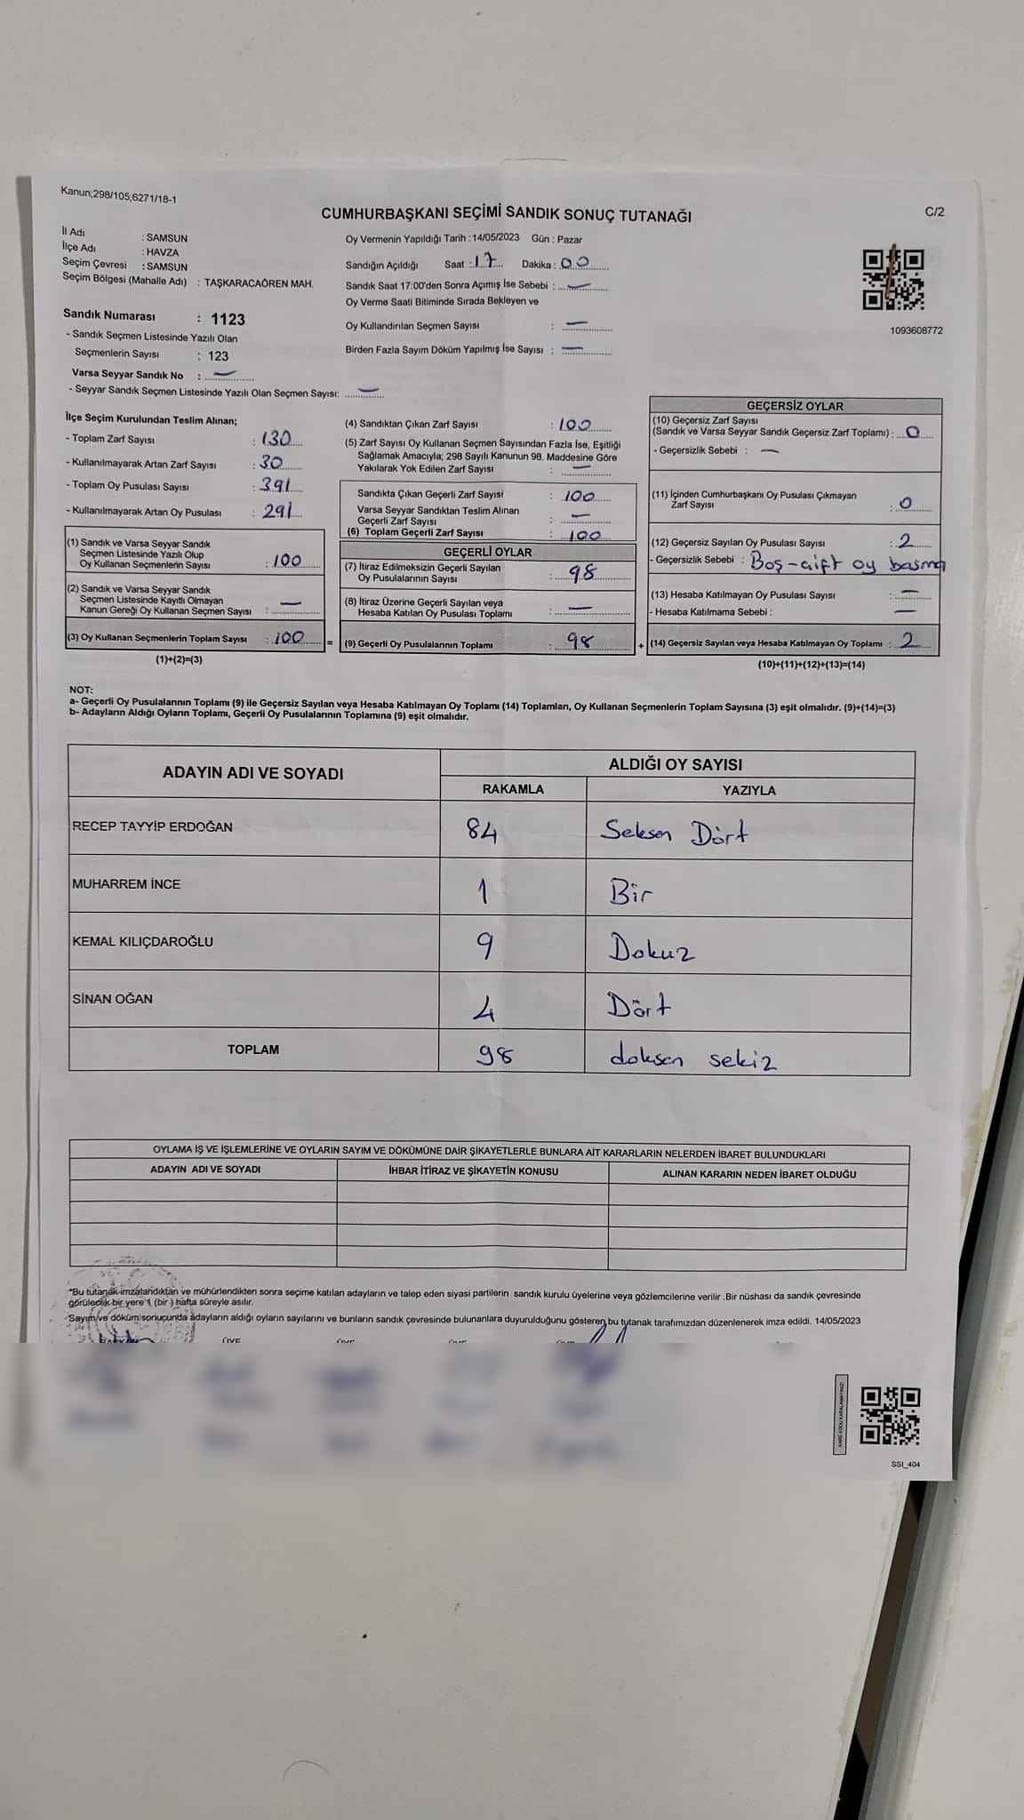 Kanun;298/105;6271/18-1
CUMHURBAŞKANI SEÇİMİ SANDIK SONUÇ TUTANAĞI
C/2
İl Adı : SAMSUN
İlçe Adı : HAVZA
Seçim Çevresi : SAMSUN
Seçim Bölgesi (Mahalle Adı) : TAŞKARACAÖREN MAH.
Sandık Numarası : 1123
- Sandık Seçmen Listesinde Yazılı Olan
Seçmenlerin Sayısı : 123
Varsa Seyyar Sandık No : —
- Seyyar Sandık Seçmen Listesinde Yazılı Olan Seçmen Sayısı: —
Oy Vermenin Yapıldığı Tarih : 14/05/2023 Gün : Pazar
Sandığın Açıldığı Saat : 17 Dakika : 00
Sandık Saat 17:00'den Sonra Açımış İse Sebebi : —
Oy Verme Saati Bitiminde Sırada Bekleyen ve
Oy Kullandırılan Seçmen Sayısı : —
Birden Fazla Sayım Döküm Yapılmış İse Sayısı : —
1093608772
İlçe Seçim Kurulundan Teslim Alınan;
- Toplam Zarf Sayısı : 130
- Kullanılmayarak Artan Zarf Sayısı : 30
- Toplam Oy Pusulası Sayısı : 391
- Kullanılmayarak Artan Oy Pusulası : 291
(1) Sandık ve Varsa Seyyar Sandık
Seçmen Listesinde Yazılı Olup
Oy Kullanan Seçmenlerin Sayısı : 100
(2) Sandık ve Varsa Seyyar Sandık
Seçmen Listesinde Kayıtlı Olmayan
Kanun Gereği Oy Kullanan Seçmen Sayısı : —
(3) Oy Kullanan Seçmenlerin Toplam Sayısı : 100 =
(1)+(2)=(3)
(4) Sandıktan Çıkan Zarf Sayısı : 100
(5) Zarf Sayısı Oy Kullanan Seçmen Sayısından Fazla İse, Eşitliği
Sağlamak Amacıyla; 298 Sayılı Kanunun 98. Maddesine Göre
Yakılarak Yok Edilen Zarf Sayısı : —
Sandıkta Çıkan Geçerli Zarf Sayısı : 100
Varsa Seyyar Sandıktan Teslim Alınan
Geçerli Zarf Sayısı : —
(6) Toplam Geçerli Zarf Sayısı : 100
GEÇERLİ OYLAR
(7) İtiraz Edilmeksizin Geçerli Sayılan
Oy Pusulalarının Sayısı : 98
(8) İtiraz Üzerine Geçerli Sayılan veya
Hesaba Katılan Oy Pusulası Toplamı : —
(9) Geçerli Oy Pusulalarının Toplamı : 98 +
GEÇERSİZ OYLAR
(10) Geçersiz Zarf Sayısı
(Sandık ve Varsa Seyyar Sandık Geçersiz Zarf Toplamı) : 0
- Geçersizlik Sebebi : —
(11) İçinden Cumhurbaşkanı Oy Pusulası Çıkmayan
Zarf Sayısı : 0
(12) Geçersiz Sayılan Oy Pusulası Sayısı : 2
- Geçersizlik Sebebi : Boş-çift oy basma
(13) Hesaba Katılmayan Oy Pusulası Sayısı : —
- Hesaba Katılmama Sebebi : —
(14) Geçersiz Sayılan veya Hesaba Katılmayan Oy Toplamı : 2
(10)+(11)+(12)+(13)=(14)
NOT:
a- Geçerli Oy Pusulalarının Toplamı (9) ile Geçersiz Sayılan veya Hesaba Katılmayan Oy Toplamı (14) Toplamları, Oy Kullanan Seçmenlerin Toplam Sayısına (3) eşit olmalıdır. (9)+(14)=(3)
b- Adayların Aldığı Oyların Toplamı, Geçerli Oy Pusulalarının Toplamına (9) eşit olmalıdır.
ADAYIN ADI VE SOYADI
ALDIĞI OY SAYISI
RAKAMLA YAZIYLA
RECEP TAYYİP ERDOĞAN 84 Seksen Dört
MUHARREM İNCE 1 Bir
KEMAL KILIÇDAROĞLU 9 Dokuz
SİNAN OĞAN 4 Dört
TOPLAM 98 doksan sekiz
OYLAMA İŞ VE İŞLEMLERİNE VE OYLARIN SAYIM VE DÖKÜMÜNE DAİR ŞİKAYETLERLE BUNLARA AİT KARARLARIN NELERDEN İBARET BULUNDUKLARI
ADAYIN ADI VE SOYADI İHBAR İTİRAZ VE ŞİKAYETİN KONUSU ALINAN KARARIN NEDEN İBARET OLDUĞU
*Bu tutanak imzalandıktan ve mühürlendikten sonra seçime katılan adayların ve talep eden siyasi partilerin sandık kurulu üyelerine veya gözlemcilerine verilir .Bir nüshası da sandık çevresinde
görülecek bir yere 1 (bir ) hafta süreyle asılır.
Sayım ve döküm sonucunda adayların aldığı oyların sayılarını ve bunların sandık çevresinde bulunanlara duyurulduğunu gösteren bu tutanak tarafımızdan düzenlenerek imza edildi. 14/05/2023
SSI_404